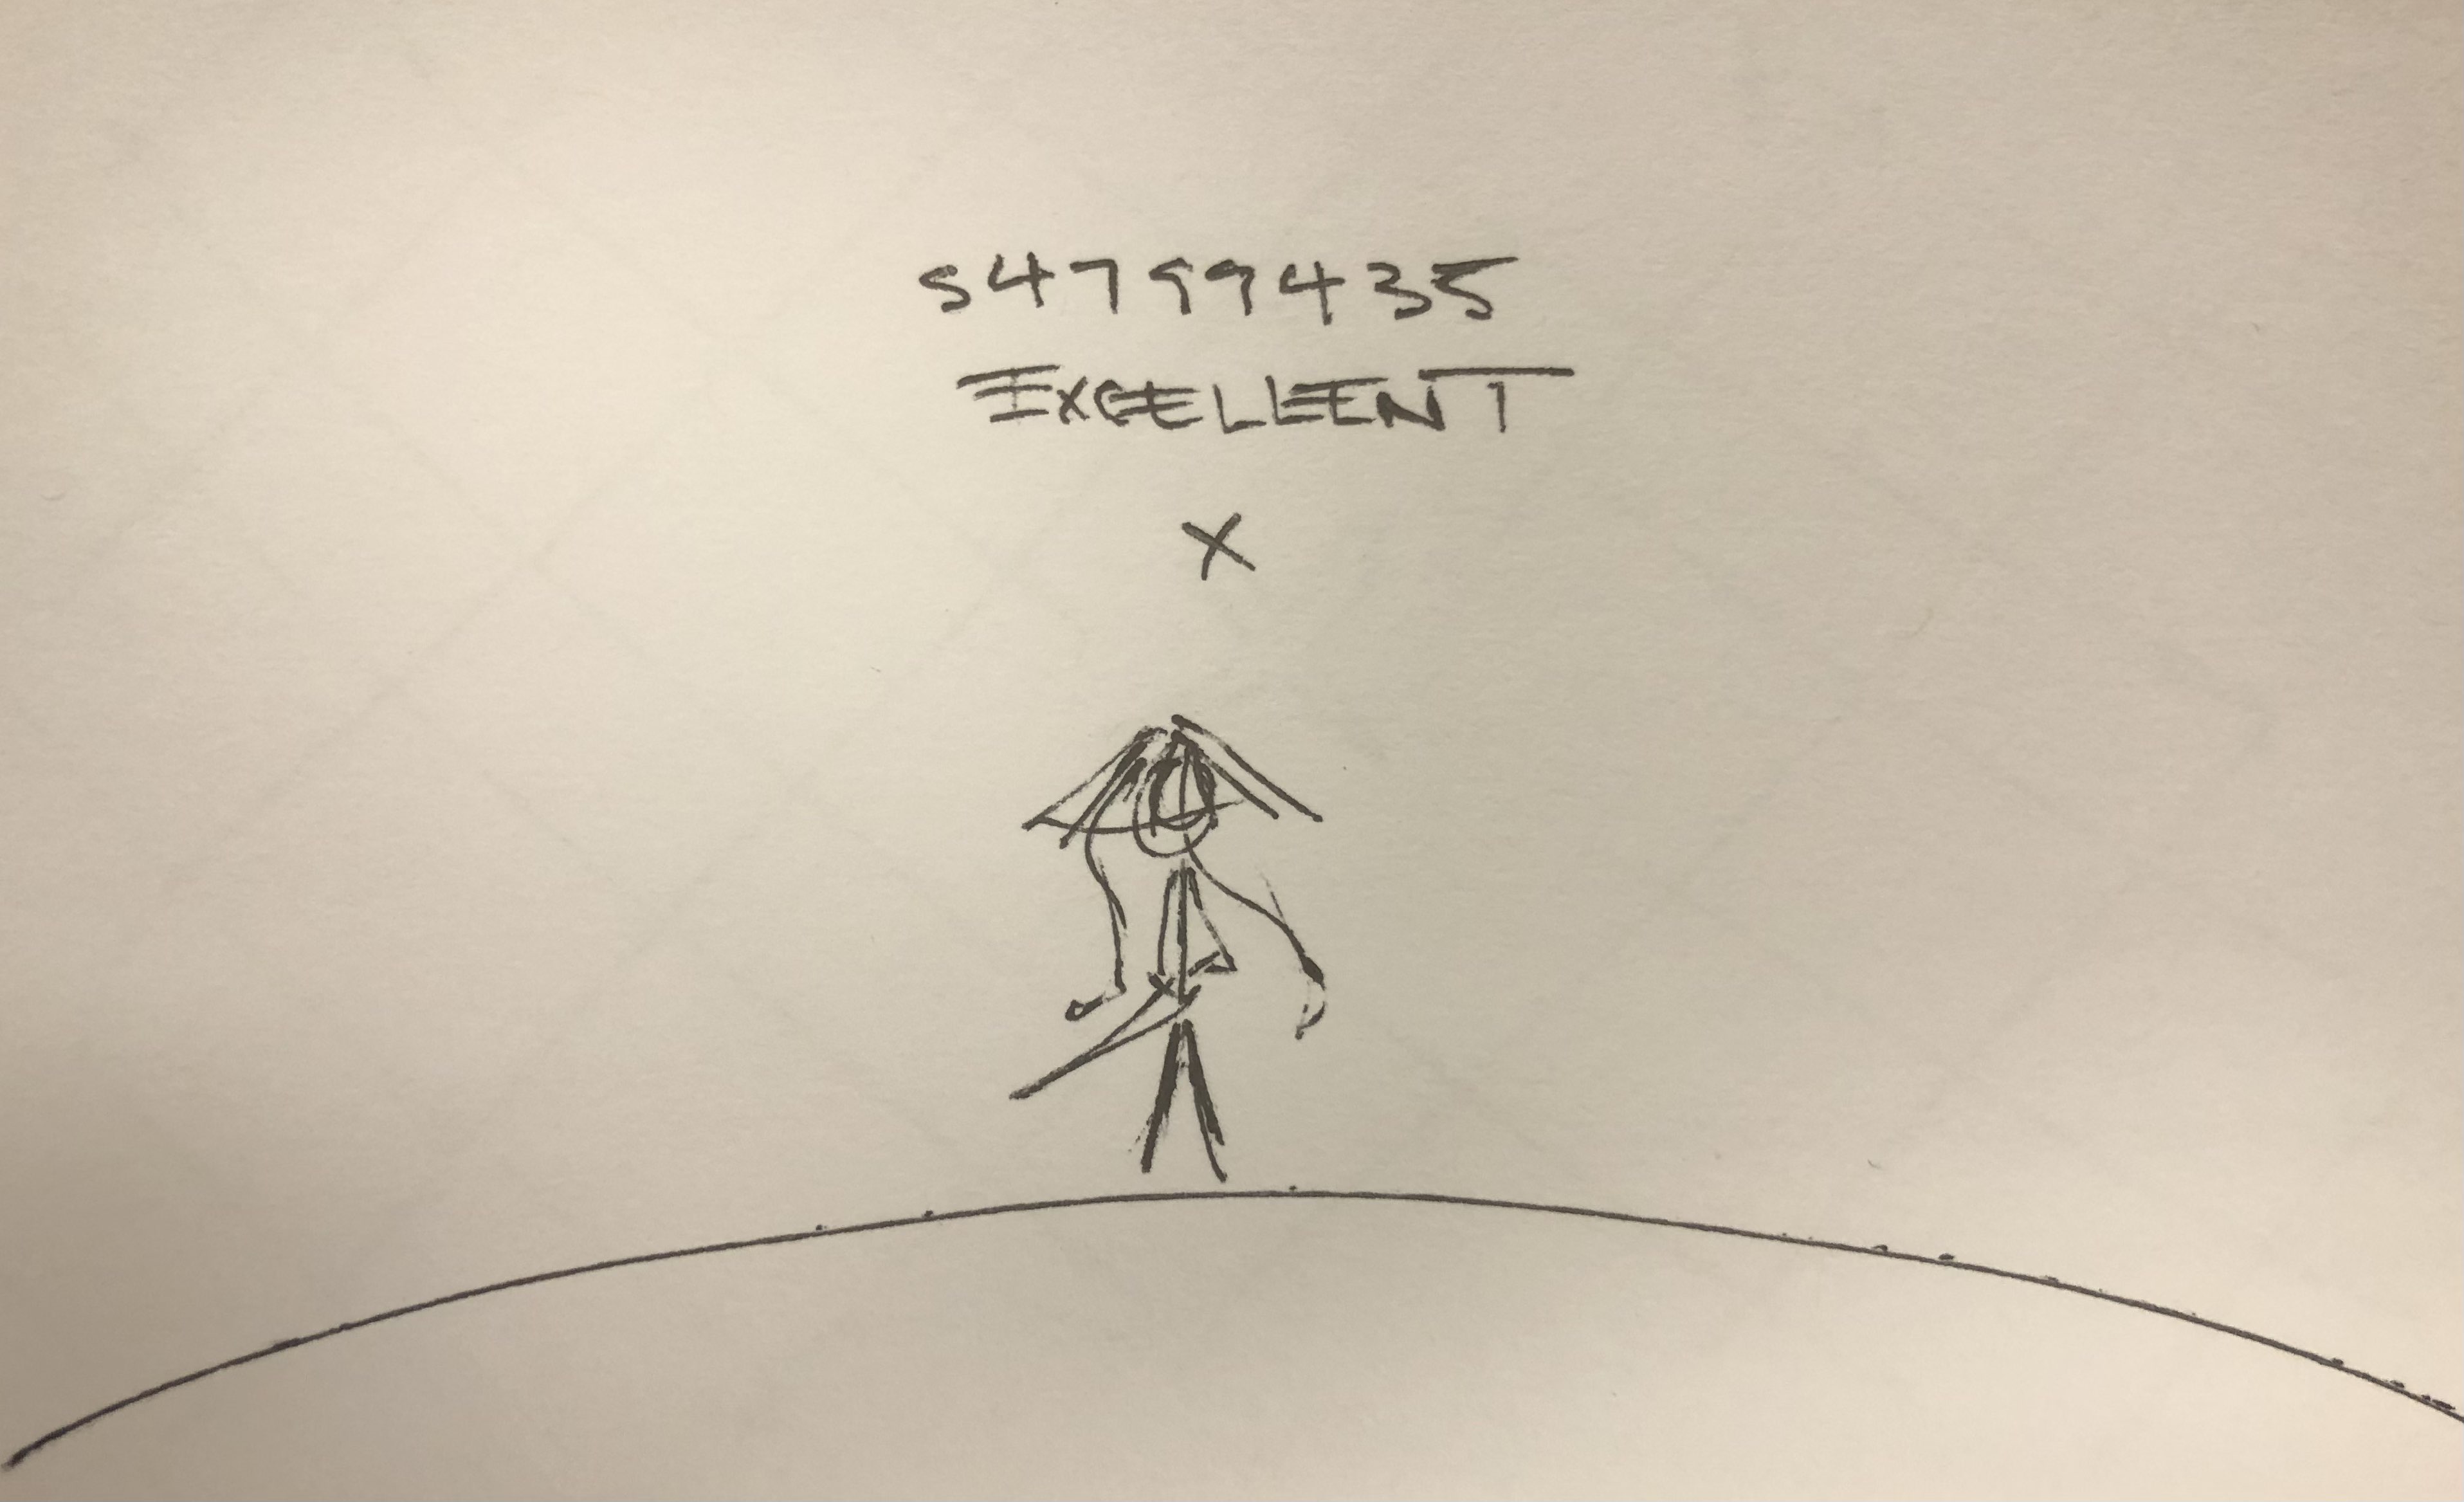 S4799435
EXCELLENT
X